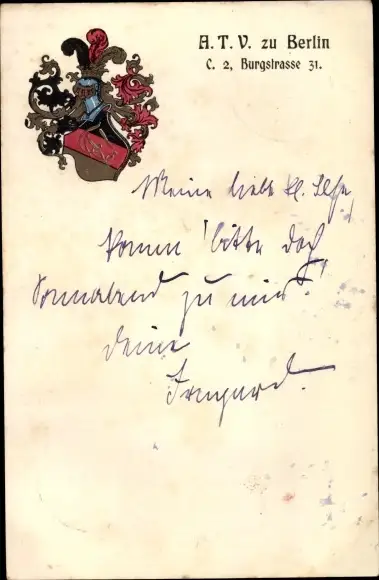 A. T. V. zu Berlin
C. 2, Burgstrasse 31.
Meine liebe kl. Ilse,
komm bitte doch
Sonnabend zu mir!
Deine
Irmgard.